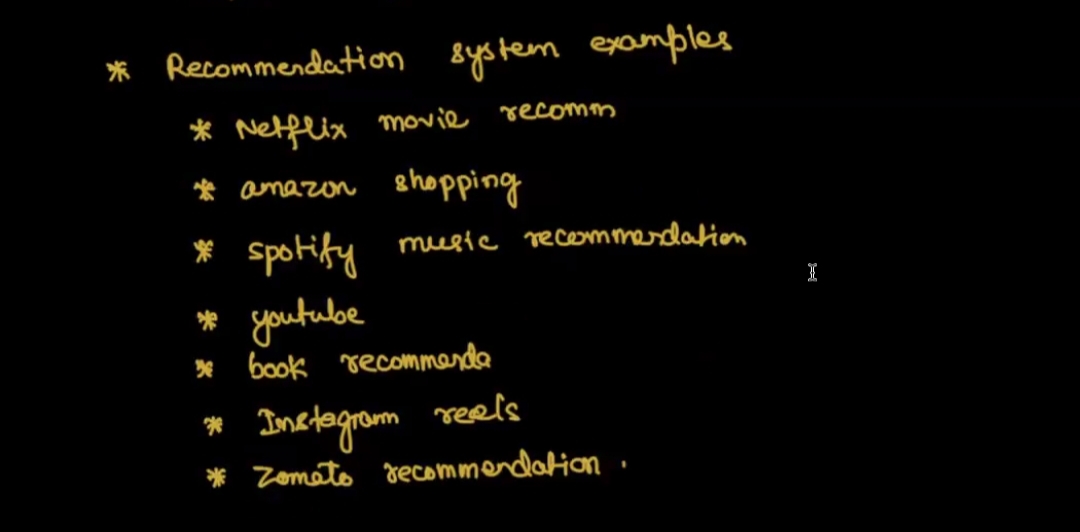 * Recommendation system examples
* Netflix movie recomm
* amazon shopping
* spotify music recommendation
* youtube
* book recommenda
* Instagram reels
* Zomato recommendation .